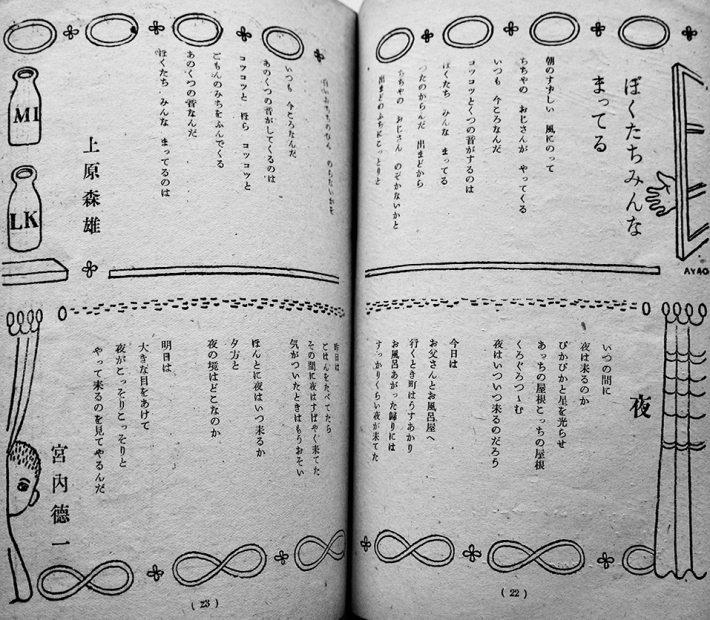 ぼくたちみんな
まってる
朝のすずしい 風にのって
ちちやの おじさんが やってくる
いつも 今ころなんだ
コツコツとくつの音がするのは
ぼくたち みんな まってる
つたのからんだ 出まどから
ちちやの おじさん のぞかないかと
出まどのふちにこっとりと
のらないかを
いつも 今ころなんだ
あのくつの音がしてくるのは
コツコツと ほら コツコツと
ごもんのみちをふんでくる
あのくつの音なんだ
ぼくたち みんな まってるのは
上原森雄
AYAO
MI
LK
夜
いつの間に
夜は来るのか
ぴかぴかと星を光らせ
あっちの屋根こっちの屋根
くろぐろつゝむ
夜はいついつ来るのだろう
今日は
お父さんとお風呂屋へ
行くとき町はうすあかり
お風呂あがった帰りには
すっかりくらい夜が来てた
昨日は
ごはんをたべてたら
その間に夜はすばやく来てた
気がついたときはもうおそい
ほんとに夜はいつ来るか
夕方と
夜の境はどこなのか
明日は
大きな目をあけて
夜がこっそりこっそりと
やって来るのを見てやるんだ
宮内德一
(22)
(23)